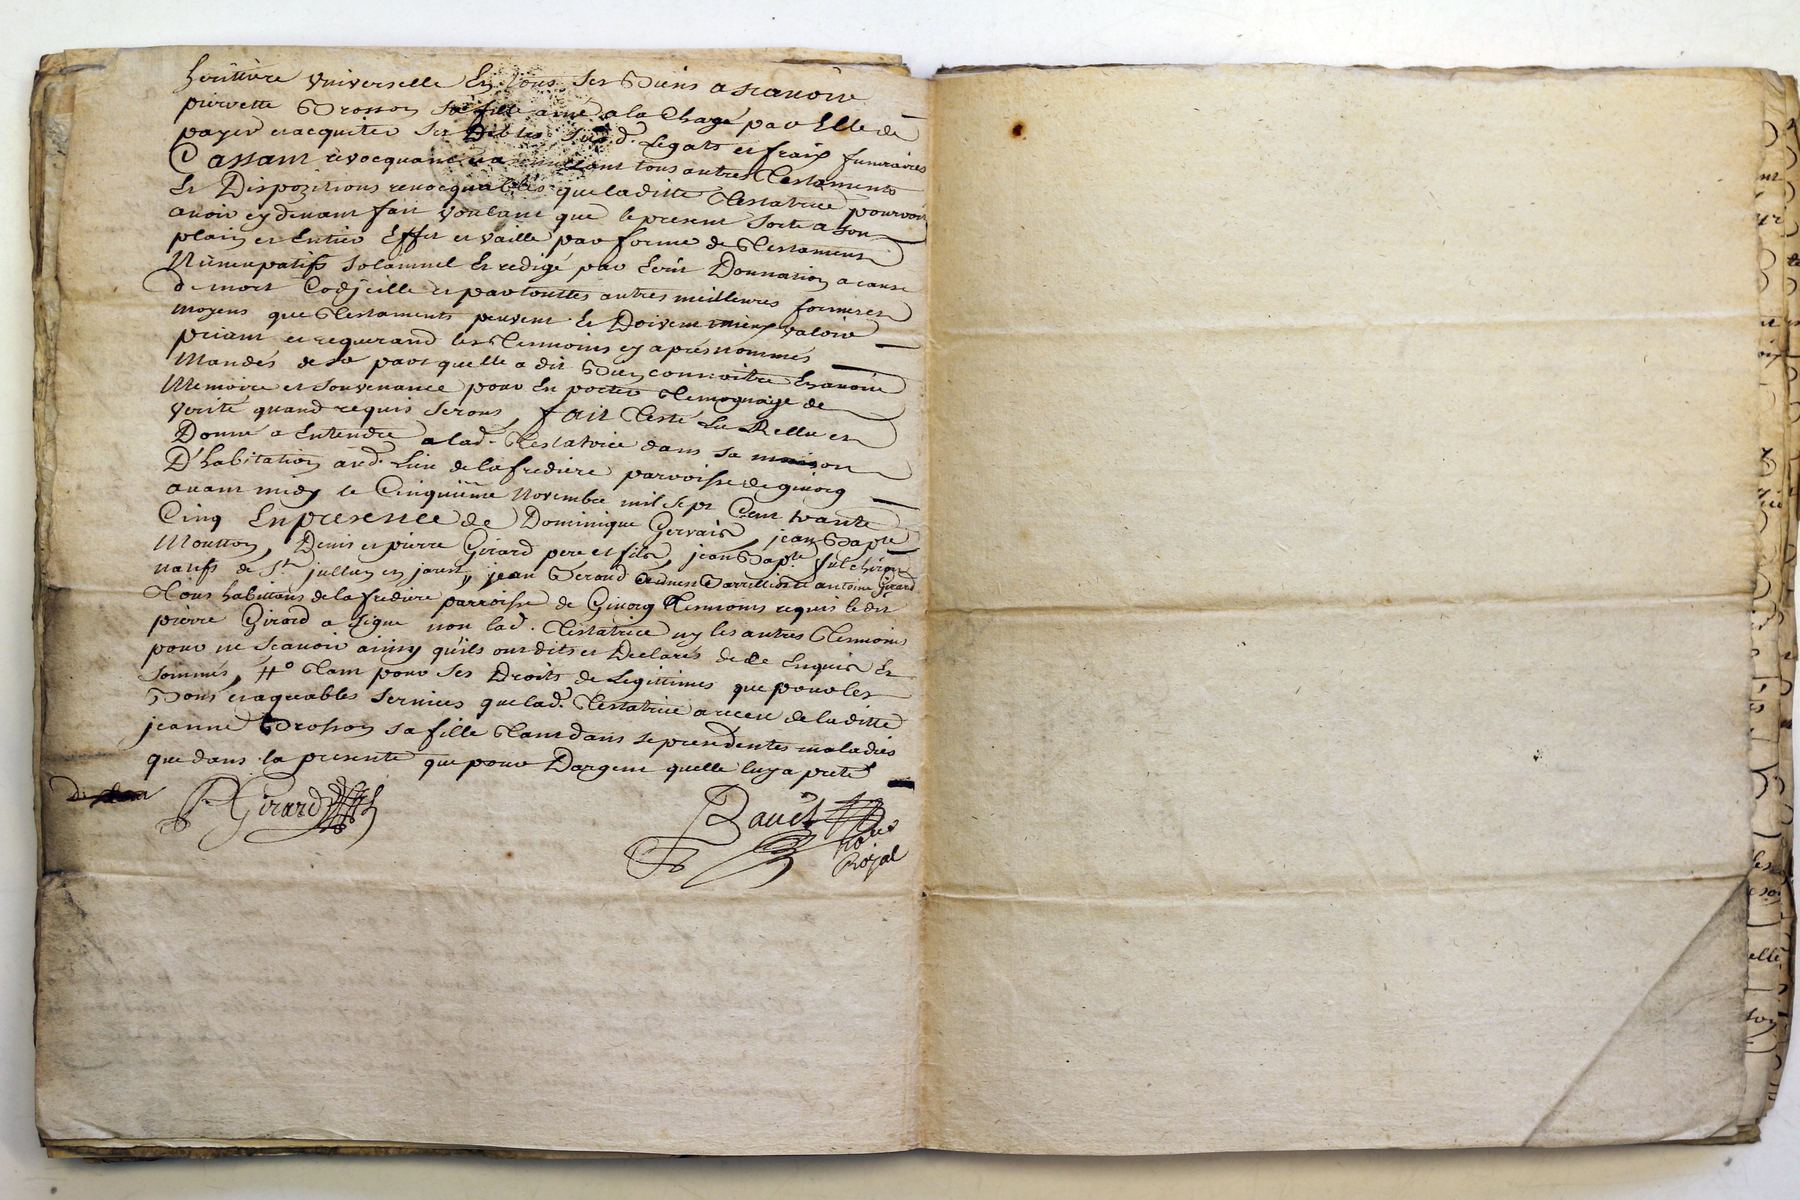 heritière Universelle En tous ses Biens ascavoir
pierrette Brosson sa fille ainé a la Charge par Elle de
payer et acquitter ses Debtes susd. Legats et fraix funeraires
Cassant revocquant et annullant tous autres Testaments
Et Dispozitions revocquables que laditte Testatrice pourroit
avoir cy devant fait voulant que le present Sorte a son
plain et Entier Effet et vaille par forme de Testament
Nuncupatifs solamnel Et redigé par Ecrit Donnation a cause
de mort Codjcille et par touttes autres meilleures formes et
moyens que Testaments peuvent Et Doivent mieux valoir
priant et requerand les Tesmoins cy après nommés
Mandés de sa part quelle a dit Bien connoitre En avoir
Memoire et souvenance pour En porter Temognage de
verité quand requis seront, fait Testé Lu Rellu et
Donné a Entendre a lad. Testatrice dans sa maison
D'habitation aud. Lieu de la fredière parroisse de givorq
avant midy le Cinquième Novembre mil sept Cent trante
Cinq En presence de Dominique Gervais, jean Bapte
Moutton, Denis et pierre Girard pere et fils, jean Bapt.
natifs de St jullien en jarest, jean antoine Girard
Tous habittans de la fredière parroisse de Givorq Tesmoins requis ledit
pierre Girard a signé non lad. Testatrice ny les autres Tesmoins
pour ne scavoir ainsy qu'ils ont dits et Declarés de ce Enquis Et
sommés, # Tant pour ses Droits de Legittimes que pour les
Bons et agreables services que lad. Testatrice a receu de laditte
jeanne Brosson sa fille Tant dans se precedentes maladies
que dans la presente que pour Dargent quelle luy a preté
P Girard
Bauët
nore
Royal
elle